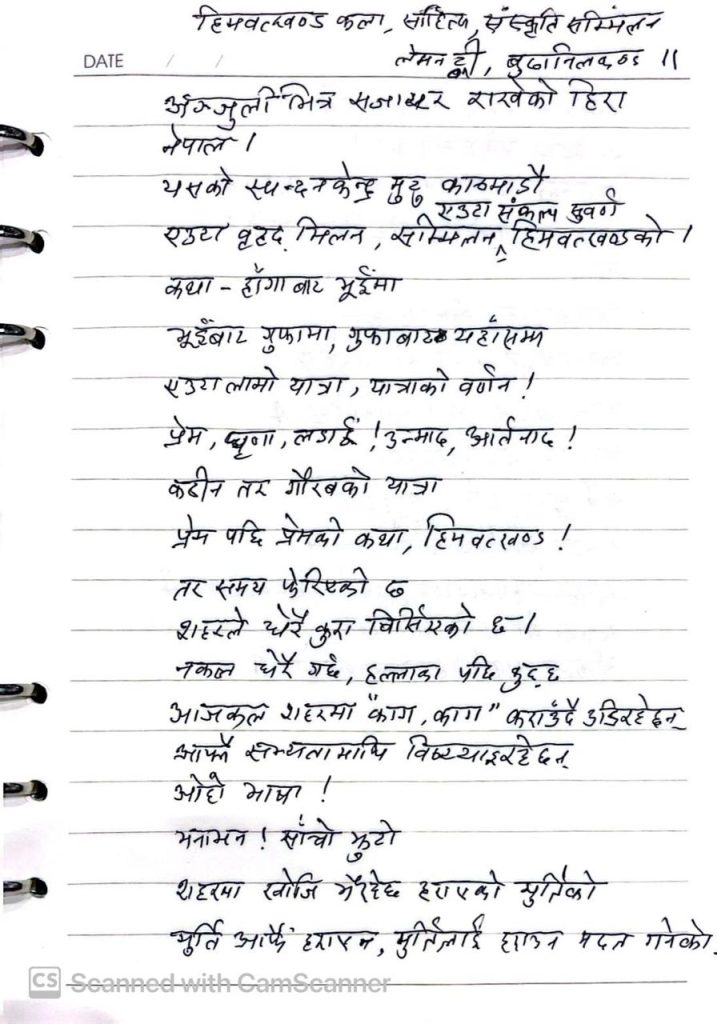 हिमवतखण्ड कला, साहित्य, संस्कृति सम्मिलन
DATE / / लेमन ट्री, बुढानिलकण्ठ ॥
अञ्जुली भित्र सजाएर राखेको हिरा
नेपाल ।
यसको स्पन्दन केन्द्र मुटु काठमाडौं
एउटा संकल्प सुवर्ण
एउटा वृहद मिलन, सम्मिलन, हिमवतखण्डको ।
कथा - हाँगा बाट भूईंमा
भूईंबाट गुफामा, गुफाबाट यहाँसम्म
एउटा लामो यात्रा, यात्राको वर्णन !
प्रेम, घृणा, लडाईं ! उन्माद, आर्तनाद !
कठीन तर गौरबको यात्रा
प्रेम पछि प्रेमको कथा, हिमवतखण्ड !
तर समय फेरिएको छ
शहरले धेरै कुरा बिर्सिएको छ ।
नकल धेरै गर्छ, हल्लाका पछि कुद्छ
आजकल शहरमा "काग, काग" कराउँदै उडिरहेछन्
आफ्नै सभ्यतामाथि विष्ट्याइरहेछन्
ओहो भाषा !
मनामन ! साँचो झुटो
शहरमा खोजि भैरहेछ हराएको मुर्तिको
मुर्ति आफैं हराएन, मुर्तिलाई हराउन मदत गरेको.
CS Scanned with CamScanner